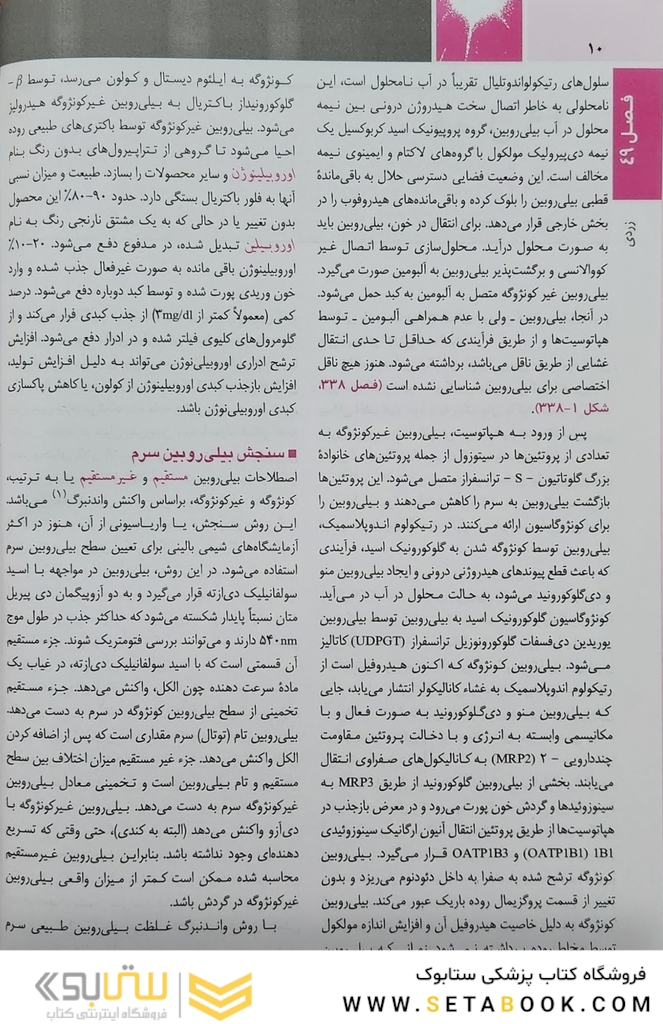 ۱۰
فصل ۴۹
زردی
سلول‌های رتیکولواندوتلیال تقریباً در آب نامحلول است، این
نامحلولی به خاطر اتصال سخت هیدروژن درونی بین نیمه
محلول در آب بیلی‌روبین، گروه پروپیونیک اسید کربوکسیل یک
نیمه دی‌پیرولیک مولکول با گروه‌های لاکتام و ایمینوی نیمه
مخالف است. این وضعیت فضایی دسترسی حلال به باقی‌ماندهٔ
قطبی بیلی‌روبین را بلوک کرده و باقی‌مانده‌های هیدروفوب را در
بخش خارجی قرار می‌دهد. برای انتقال در خون، بیلی‌روبین باید
به صورت محلول درآید. محلول‌سازی توسط اتصال غیر
کووالانسی و برگشت‌پذیر بیلی‌روبین به آلبومین صورت می‌گیرد.
بیلی‌روبین غیر کونژوگه متصل به آلبومین به کبد حمل می‌شود.
در آنجا، بیلی‌روبین ـ ولی با عدم همراهی آلبومین ـ توسط
هپاتوسیت‌ها و از طریق فرآیندی که حداقل تا حدی انتقال
غشایی از طریق ناقل می‌باشد، برداشته می‌شود. هنوز هیچ ناقل
اختصاصی برای بیلی‌روبین شناسایی نشده است (فصل ۳۳۸،
شکل ۱-۳۳۸).
پس از ورود به هپاتوسیت، بیلی‌روبین غیرکونژوگه به
تعدادی از پروتئین‌ها در سیتوزول از جمله پروتئین‌های خانوادهٔ
بزرگ گلوتاتیون - S - ترانسفراز متصل می‌شود. این پروتئین‌ها
بازگشت بیلی‌روبین به سرم را کاهش می‌دهند و بیلی‌روبین را
برای کونژوگاسیون ارائه می‌کنند. در رتیکولوم اندوپلاسمیک،
بیلی‌روبین توسط کونژوگه شدن به گلوکورونیک اسید، فرآیندی
که باعث قطع پیوندهای هیدروژنی درونی و ایجاد بیلی‌روبین منو
و دی‌گلوکورونید می‌شود، به حالت محلول در آب در می‌آید.
کونژوگاسیون گلوکورونیک اسید به بیلی‌روبین توسط بیلی‌روبین
یوریدین دی‌فسفات گلوکورونوزیل ترانسفراز (UDPGT) کاتالیز
می‌شود. بیلی‌روبین کونژوگه که اکنون هیدروفیل است از
رتیکولوم اندوپلاسمیک به غشاء کانالیکولر انتشار می‌یابد، جایی
که بیلی‌روبین منو و دی‌گلوکورونید به صورت فعال و با
مکانیسمی وابسته به انرژی و با دخالت پروتئین مقاومت
چنددارویی - ۲ (MRP2) به کانالیکول‌های صفراوی انتقال
می‌یابند. بخشی از بیلی‌روبین گلوکورونید از طریق MRP3 به
سینوزوئیدها و گردش خون پورت می‌رود و در معرض بازجذب در
هپاتوسیت‌ها از طریق پروتئین انتقال آنیون ارگانیک سینوزوئیدی
1B1 (OATP1B1) و OATP1B3 قرار می‌گیرد. بیلی‌روبین
کونژوگه ترشح شده به صفرا به داخل دئودنوم می‌ریزد و بدون
تغییر از قسمت پروگزیمال روده باریک عبور می‌کند. بیلی‌روبین
کونژوگه به دلیل خاصیت هیدروفیل آن و افزایش اندازه مولکول
توسط مخاط روده برداشته نمی‌شود. زمانی که بیلی‌روبین
کونژوگه به ایلئوم دیستال و کولون می‌رسد، توسط β-
گلوکورونیداز باکتریال به بیلی‌روبین غیرکونژوگه هیدرولیز
می‌شود. بیلی‌روبین غیرکونژوگه توسط باکتری‌های طبیعی روده
احیا می‌شود تا گروهی از تتراپیرول‌های بدون رنگ بنام
اوروبیلینوژن و سایر محصولات را بسازد. طبیعت و میزان نسبی
آنها به فلور باکتریال بستگی دارد. حدود ۹۰-۸۰٪ این محصول
بدون تغییر یا در حالی که به یک مشتق نارنجی رنگ به نام
اوروبیلین تبدیل شده، در مدفوع دفع می‌شود. ۲۰-۱۰٪
اوروبیلینوژن باقی مانده به صورت غیرفعال جذب شده و وارد
خون وریدی پورت شده و توسط کبد دوباره دفع می‌شود. درصد
کمی (معمولاً کمتر از ۳mg/dl) از جذب کبدی فرار می‌کند و از
گلومرول‌های کلیوی فیلتر شده و در ادرار دفع می‌شود. افزایش
ترشح ادراری اوروبیلی‌نوژن می‌تواند به دلیل افزایش تولید،
افزایش بازجذب کبدی اوروبیلینوژن از کولون، یا کاهش پاکسازی
کبدی اوروبیلی‌نوژن باشد.
■ سنجش بیلی‌روبین سرم
اصطلاحات بیلی‌روبین مستقیم و غیرمستقیم یا به ترتیب،
کونژوگه و غیرکونژوگه، براساس واکنش واندنبرگ(۱) می‌باشد.
این روش سنجش، یا واریاسیونی از آن، هنوز در اکثر
آزمایشگاه‌های شیمی بالینی برای تعیین سطح بیلی‌روبین سرم
استفاده می‌شود. در این روش، بیلی‌روبین در مواجهه با اسید
سولفانیلیک دی‌ازته قرار می‌گیرد و به دو آزوپیگمان دی پیریل
متان نسبتاً پایدار شکسته می‌شود که حداکثر جذب در طول موج
۵۴۰nm دارند و می‌توانند بررسی فتومتریک شوند. جزء مستقیم
آن قسمتی است که با اسید سولفانیلیک دی‌ازته، در غیاب یک
مادهٔ سرعت دهنده چون الکل، واکنش می‌دهد. جزء مستقیم
تخمینی از سطح بیلی‌روبین کونژوگه در سرم به دست می‌دهد.
بیلی‌روبین تام (توتال) سرم مقداری است که پس از اضافه کردن
الکل واکنش می‌دهد. جزء غیر مستقیم میزان اختلاف بین سطح
مستقیم و تام بیلی‌روبین است و تخمینی معادل بیلی‌روبین
غیرکونژوگه سرم به دست می‌دهد. بیلی‌روبین غیرکونژوگه با
دی‌آزو واکنش می‌دهد (البته به کندی)، حتی وقتی که تسریع
دهنده‌ای وجود نداشته باشد. بنابراین بیلی‌روبین غیرمستقیم
محاسبه شده ممکن است کمتر از میزان واقعی بیلی‌روبین
غیرکونژوگه در گردش باشد.
با روش واندنبرگ غلظت بیلی‌روبین طبیعی سرم
فروشگاه کتاب پزشکی ستابوک
WWW.SETABOOK.COM
ستابوک
فروشگاه اینترنتی کتاب